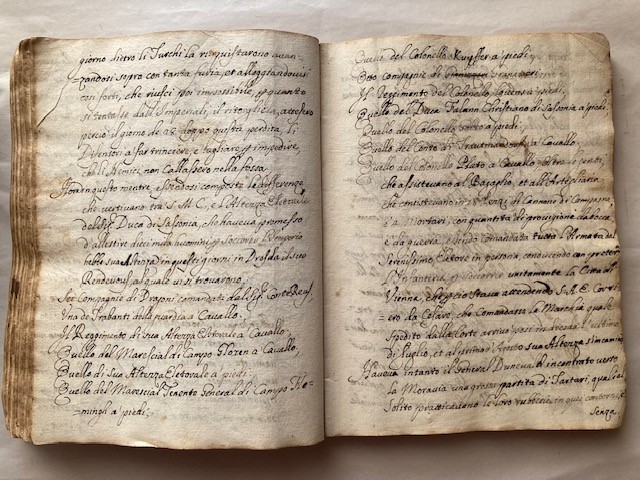 giorno dietro li Turchi la riaquistarono auan-
=zandosi sopra con tanta furia, et alloggiandouisi
così forti, che riuscì poi impossibile, per quanto
si tentasse dall'Imperiali, il ritoglierla, attesero
perciò il giorno de 22 doppo questa perdita, li
Difensori a far trinciere, e tagliare, per impedire,
che li Nemici non Callassero nella fossa.
In questo mentre, essendosi composte le differenze
che vertivano tra S. M. C., e l'Altezza Elettorale
del Sig.r Duca di Sassonia, si haueva promesso
d'allestire dieci mila huomini per soccorso l'Imperio
hebbe sua Altezza in questi giorni in Dresda il suo
Rendeuous, al quale ui si trouarono.
Sei Compagnie di Dragoni comandati dal Sig.r Conte Reus,
Una de Trabanti della guardia a Cauallo.
Il Reggimento di Sua Altezza Elettorale a Cauallo,
Quello del Marescial di Campo Glozen a Cauallo,
Quello di Sua Altezza Elettorale a piedi.
Quello del Marescial Tenente General di Campo Fle=
=mingh a piedi;
Quello del Colonello Kuyffer a piedi;
Otto Compagnie di Granatieri
Il Reggimento del Colonello a piedi.
Quello del Duca Christiano di Sassonia a piedi.
Quello del Colonello a piedi.
Quello del Conte di Trautmansdorf a Cauallo.
Quello del Colonello Plato a Cauallo, oltre le genti,
che assisteuano al Bagaglio, et all'Artegliaria
che consisteuano in Pezzi di Cannone di Campagna,
e Mortari, con quantità di prouisione da bocca
e da guerra, essendo comandata tutta l'Armata dal
Serenissimo Elettore in persona, conducendo con
l'Infanteria, per soccorrere unitamente la Città di
Vienna, che perciò staua attendendo S. A. E. Corri=
=ero da Cesare, che Comandasse la Marchia quale
spedito dalla Corte arriuò così in Dresda l'ultimo
di Luglio, et al primo d'Agosto sua Altezza s'incaminò
Haueua intanto il General Duneual incontrato verso
la Morauia una grossa partita di Tartari, quali al
Solito pratticauano le loro rubberie in quei contorni, e
senza